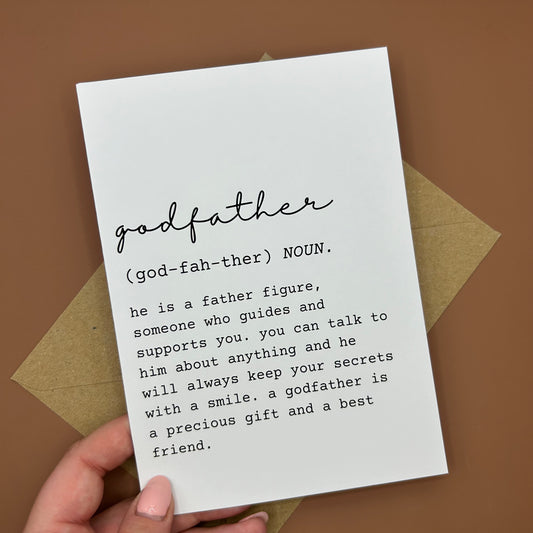 godfather
(god-fah-ther) NOUN.
he is a father figure,
someone who guides and
supports you. you can talk to
him about anything and he
will always keep your secrets
with a smile. a godfather is
a precious gift and a best
friend.